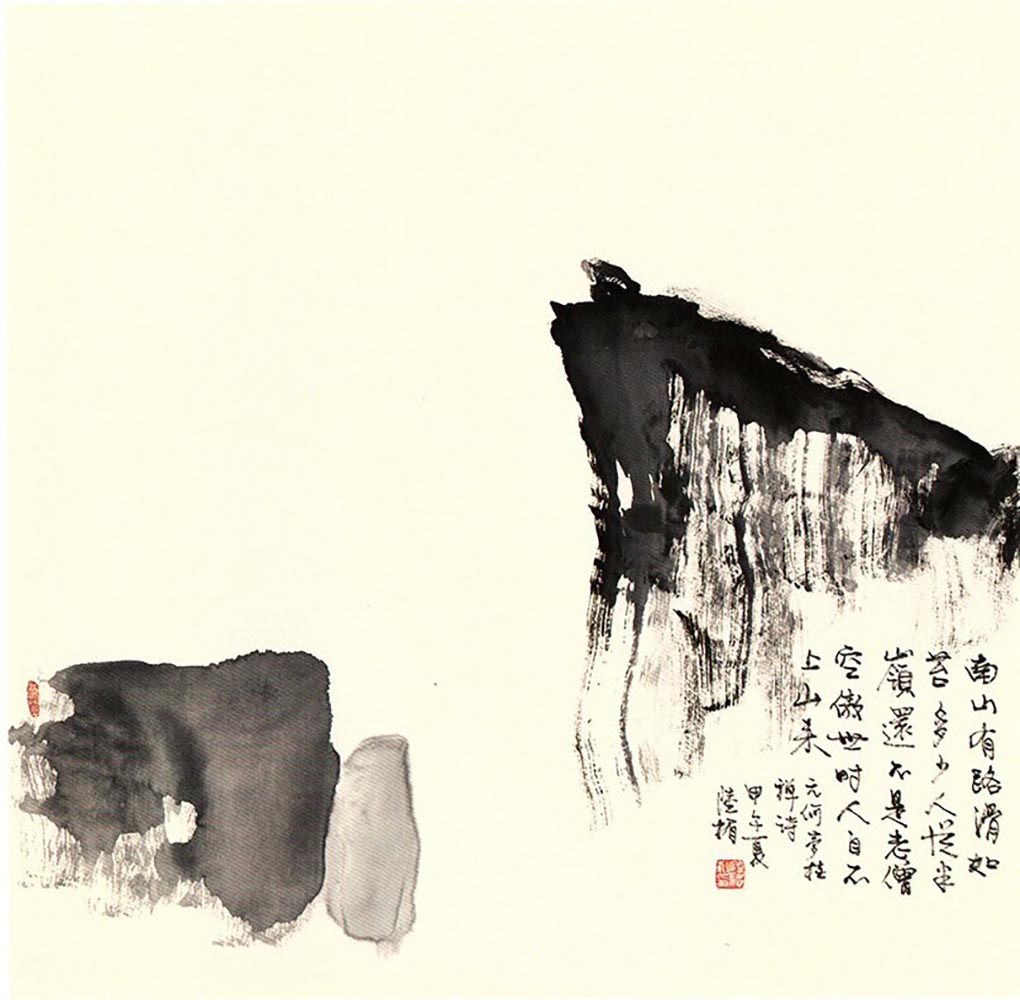 南山有路滑如
苔多少人從半
嶺還不是老僧
空傲世時人自不
上山来
元何夢桂
禅诗
甲午夏
陸